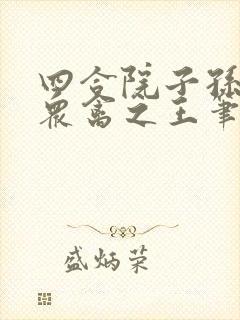 四合院子孙
众禽之王笔
盛炳荣